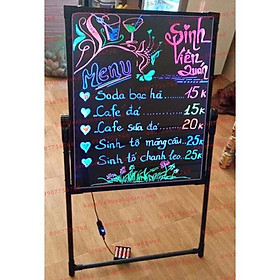 Sinh
Viên
Quán
Menu
Soda bạc hà 15K
Cafe đá 15K
Cafe sữa đá 20K
Sinh tố mãng cầu 25K
Sinh tố chanh leo 25K